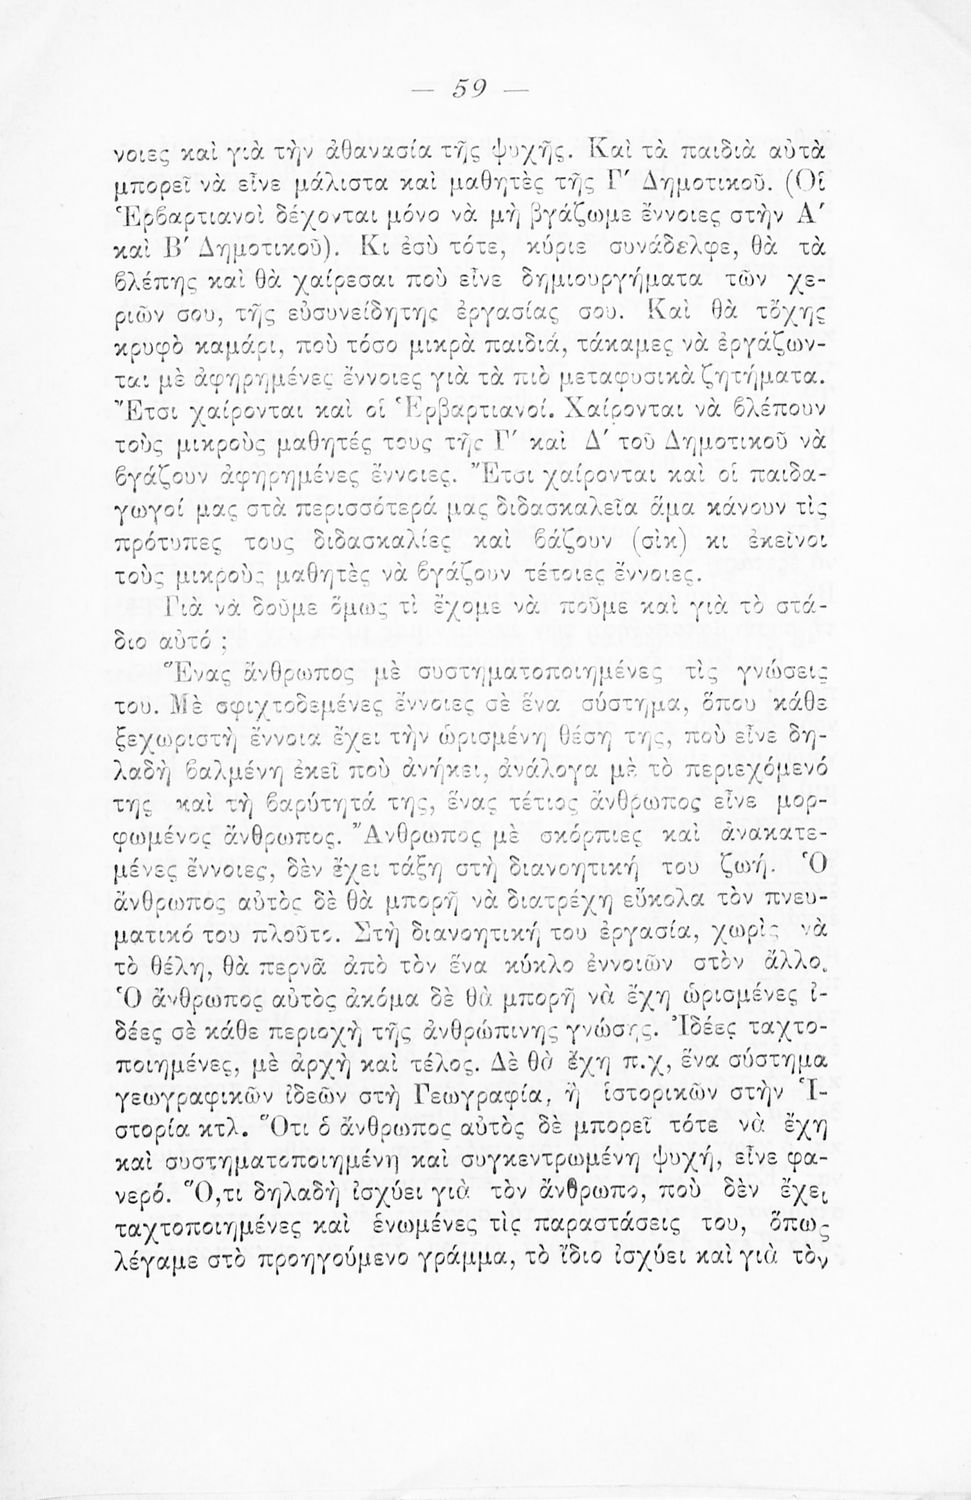 — 59 —
νοιες καὶ γιὰ τὴν ἀθανασία τῆς ψυχῆς. Καὶ τὰ παιδιὰ αὐτὰ
μπορεῖ νὰ εἶνε μάλιστα καὶ μαθητὲς τῆς Γ′ Δημοτικοῦ. (Οἱ
Ἑρβαρτιανοὶ δέχονται μόνο νὰ μὴ βγάζωμε ἔννοιες στὴν Α′
καὶ Β′ Δημοτικοῦ). Κι ἐσὺ τότε, κύριε συνάδελφε, θὰ τὰ
βλέπης καὶ θὰ χαίρεσαι ποὺ εἶνε δημιουργήματα τῶν χε-
ριῶν σου, τῆς εὐσυνείδητης ἐργασίας σου. Καὶ θὰ τὄχης
κρυφὸ καμάρι, ποὺ τόσο μικρὰ παιδιά, τἄκαμες νὰ ἐργάζων-
ται μὲ ἀφηρημένες ἔννοιες γιὰ τὰ πιὸ μεταφυσικὰ ζητήματα.
Ἔτσι χαίρονται καὶ οἱ Ἑρβαρτιανοί. Χαίρονται νὰ βλέπουν
τοὺς μικροὺς μαθητές τους τῆς Γ′ καὶ Δ′ τοῦ Δημοτικοῦ νὰ
βγάζουν ἀφηρημένες ἔννοιες. Ἔτσι χαίρονται καὶ οἱ παιδα-
γωγοί μας στὰ περισσότερά μας διδασκαλεῖα ἅμα κάνουν τὶς
πρότυπες τους διδασκαλίες καὶ βάζουν (σὶκ) κι ἐκεῖνοι
τοὺς μικροὺς μαθητὲς νὰ βγάζουν τέτοιες ἔννοιες.
Γιὰ νὰ δοῦμε ὅμως τὶ ἔχομε νὰ ποῦμε καὶ γιὰ τὸ στά-
διο αὐτό ;
Ἕνας ἄνθρωπος μὲ συστηματοποιημένες τὶς γνώσεις
του. Μὲ σφιχτοδεμένες ἔννοιες σὲ ἕνα σύστημα, ὅπου κάθε
ξεχωριστὴ ἔννοια ἔχει τὴν ὡρισμένη θέση της, ποὺ εἶνε δη-
λαδὴ βαλμένη ἐκεῖ ποὺ ἀνήκει, ἀνάλογα μὲ τὸ περιεχόμενό
της καὶ τὴ βαρύτητά της, ἕνας τέτιος ἄνθρωπος εἶνε μορ-
φωμένος ἄνθρωπος. Ἄνθρωπος μὲ σκόρπιες καὶ ἀνακατε-
μένες ἔννοιες, δὲν ἔχει τάξη στὴ διανοητική του ζωή. Ὁ
ἄνθρωπος αὐτὸς δὲ θὰ μπορῆ νὰ διατρέχη εὔκολα τὸν πνευ-
ματικό του πλοῦτο. Στὴ διανοητική του ἐργασία, χωρὶς νὰ
τὸ θέλη, θὰ περνᾶ ἀπὸ τὸν ἕνα κύκλο ἐννοιῶν στὸν ἄλλο.
Ὁ ἄνθρωπος αὐτὸς ἀκόμα δὲ θὰ μπορῆ νὰ ἔχη ὡρισμένες ἰ-
δέες σὲ κάθε περιοχὴ τῆς ἀνθρώπινης γνώσης. Ἰδέες ταχτο-
ποιημένες, μὲ ἀρχὴ καὶ τέλος. Δὲ θὰ ἔχη π.χ, ἕνα σύστημα
γεωγραφικῶν ἰδεῶν στὴ Γεωγραφία, ἢ ἱστορικῶν στὴν Ἱ-
στορία κτλ. Ὅτι ὁ ἄνθρωπος αὐτὸς δὲ μπορεῖ τότε νὰ ἔχη
καὶ συστηματοποιημένη καὶ συγκεντρωμένη ψυχή, εἶνε φα-
νερό. Ὅ,τι δηλαδὴ ἰσχύει γιὰ τὸν ἄνθρωπο, ποὺ δὲν ἔχει
ταχτοποιημένες καὶ ἑνωμένες τὶς παραστάσεις του, ὅπως
λέγαμε στὸ προηγούμενο γράμμα, τὸ ἴδιο ἰσχύει καὶ γιὰ τὸν